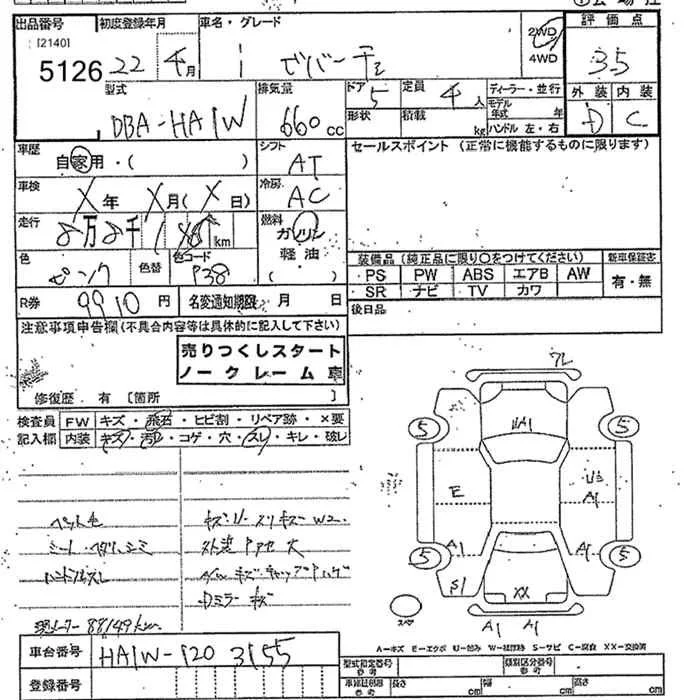 出品番号 初度登録年月 車名・グレード 2WD 4WD 評価点
[2140]
5126 22 4月 i ビバーチェ 3.5
型式 排気量 ドア 定員 ディーラー・並行 外装 内装
DBA-HA1W 660cc 5 4人 モデル年式 年 D C
形状 積載 kg ハンドル 左・右
車歴 自家用・( ) シフト AT セールスポイント (正常に機能するものに限ります)
車検 X年 X月(X日) 冷房 AC
走行 8万8千1 km 燃料 ガソリン 軽油 ( )
色 ピンク 色替 色コード P38
装備品(純正品に限り○をつけてください) 新車保証書
PS PW ABS エアB AW 有・無
SR ナビ TV カワ
R券 9910円 名変通知期限 月 日 後日品
注意事項申告欄(不具合内容等は具体的に記入して下さい)
売りつくしスタート
ノークレーム車
修復歴 有 [箇所 ]
検査員記入欄 FW キズ・飛石・ヒビ割・リペア跡・×要
内装 キズ・汚レ・コゲ・穴・スレ・キレ・破レ
ペット毛 キズ・U・スリキズ W2
シート・ヘタリ・シミ 外装
ハンドルスレ
Dミラーキズ
88149km
ワレ
5 5
UA1
E U3
A1
A1 A1
5 5
S1 XX
スペア
A1 A1
A-キズ E-エクボ U-凹み W-補修跡 S-サビ C-腐食 XX-交換済
車台番号 HA1W-120 3155
型式指定番号 参考 類別区分番号 参考
登録番号 車検証記載 参考 長さ cm 幅 cm 高さ cm